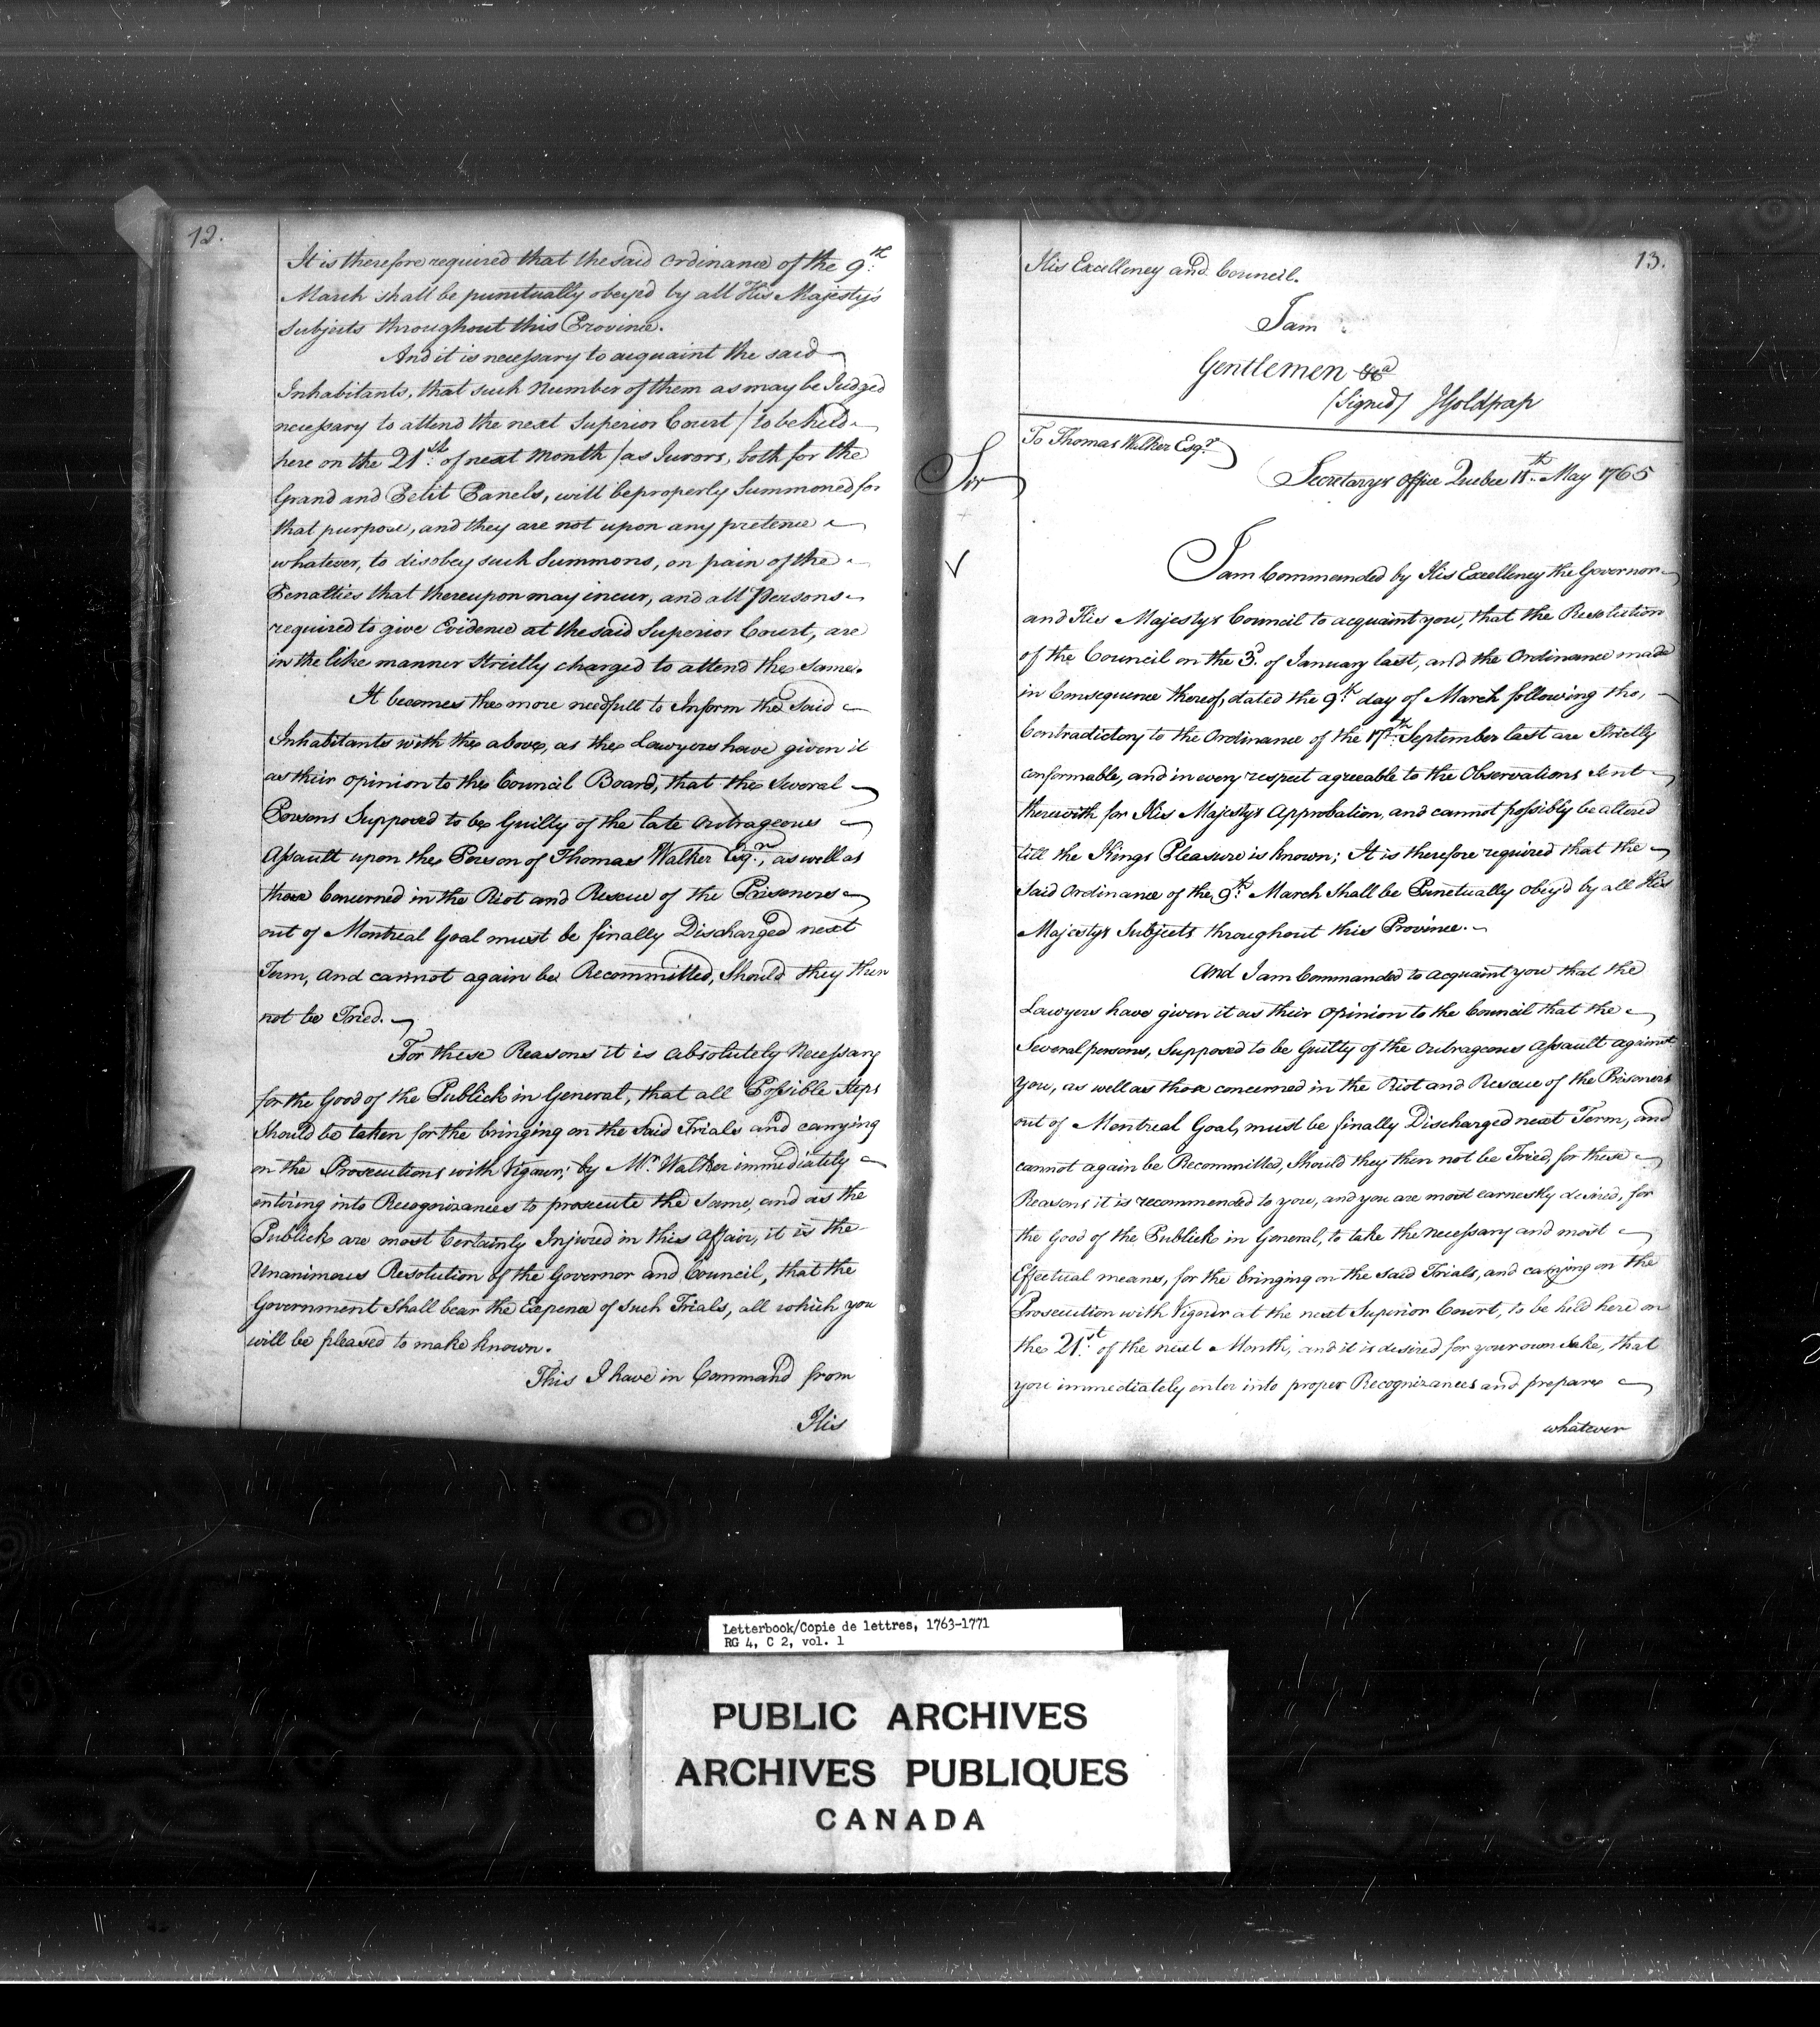 12.
It is therefore required that the said Ordinance of the 9th
March shall be punctually obeyed by all His Majesty's
Subjects throughout this Province.
And it is necessary to acquaint the said
Inhabitants, that such Number of them as may be Judged
necessary to attend the next Superior Court / to be held
here on the 21st of next Month / as Jurors, both for the
Grand and Petit Panels, will be properly Summoned for
that purpose, and they are not upon any pretence
whatever, to disobey such Summons, on pain of the
Penalties that thereupon may incur, and all Persons
required to give Evidence at the said Superior Court, are
in the like manner Strictly charged to attend the Same.
It becomes the more needfull to Inform the Said
Inhabitants with the above, as the Lawyers have given it
as their opinion to the Council Board, that the Several
Persons Supposed to be Guilty of the late Outrageous
Assault upon the Person of Thomas Walker Esqr., as well as
those Concerned in the Riot and Rescue of the Prisoners
out of Montreal Goal must be finally Discharged next
Term, and cannot again be Recommitted, Should they then
not be Tried.
For these Reasons it is absolutely Necessary
for the Good of the Publick in General, that all Possible Steps
Should be taken for the bringing on the Said Trials and carrying
on the Prosecutions with Vigour; by Mr. Walker immediately
entring into Recognizances to prosecute the Same, and as the
Publick are most Certainly Injured in this Affair, it is the
Unanimous Resolution of the Governor and Council, that the
Government Shall bear the Expence of Such Trials, all which you
will be pleased to make known.
This I have in Command from
His
13.
His Excellency and Council.
I am
Gentlemen &ca
(Signed) JGoldfrap
To Thomas Walker Esqr.
Secretarys Office Quebec 18th. May 1765
Sir
I am Commanded by His Excellency the Governor
and His Majestys Council to acquaint you, that the Resolution
of the Council on the 3d. of January last, and the Ordinance made
in Consequence thereof, dated the 9th. day of March following tho,
Contradictory to the Ordinance of the 17th. September last are Strictly
conformable, and in every respect agreeable to the Observations Sent
therewith for His Majestys Approbation, and cannot possibly be altered
till the Kings Pleasure is known; It is therefore required that the
Said Ordinance of the 9th. March Shall be Punctually obey'd by all His
Majestys Subjects throughout this Province.
And I am Commanded to acquaint you that the
Lawyers have given it as their Opinion to the Council that the
Several persons, Supposed to be Guilty of the Outrageous Assault against
you, as well as those concerned in the Riot and Rescue of the Prisoners
out of Montreal Goal, must be finally Discharged next Term, and
cannot again be Recommitted, Should they then not be Tried, for these
Reasons it is recommended to you, and you are most earnestly desired, for
the Good of the Publick in General, to take the Necessary and most
Effectual means, for the bringing on the said Trials, and carrying on the
Prosecution with Vigour at the next Superior Court, to be held here on
the 21st. of the next Month, and it is desired for your own Sake, that
you immediately enter into proper Recognizances and prepare
whatever
Letterbook/Copie de lettres, 1763-1771
RG 4, C 2, vol. 1
PUBLIC ARCHIVES
ARCHIVES PUBLIQUES
CANADA